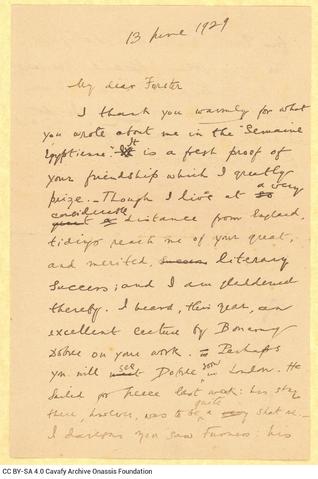 13 June 1929
My dear Forster
I thank you warmly for what
you wrote about me in the "Semaine
Egyptienne". It is a fresh proof
of your friendship which I greatly
prize. — Though I live at a very
considerable distance from England,
tidings reach me of your great,
and merited, literary
success; and I am gladdened
thereby. I heard, this year, an
excellent lecture by Bonamy
Dobree on your work. — Perhaps
you will see Dobree soon in London. He
sailed for last week: his stay
there, however, was to be quite a short one. —
you saw Furness: his
CC BY-SA 4.0 Cavafy Archive Onassis Foundation